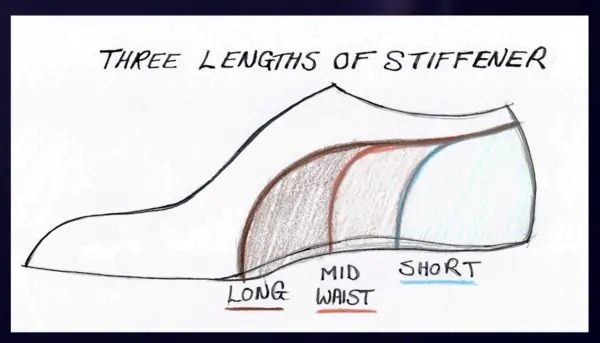 THREE LENGTHS OF STIFFENER
LONG
MID
WAIST
SHORT